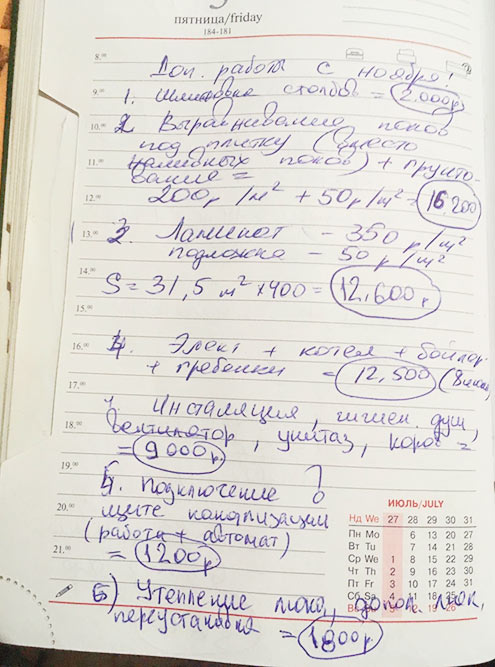 пятница/friday
184-181
8.00
Доп. работы с ноября!
9.00
1. Шлифовка столбов = 2.000р
10.00
2 Выравнивание полов
под плитку (вместо
11.00
наливных полов) + грунто-
вание =
12.00
200р /м² + 50р/м² = 16 200
13.00
3. Ламинат - 350 р/м²
подложка - 50 р/м²
14.00
S = 31,5 м² × 400 = 12,600 р
15.00
16.00
4. Элект + котел + бойлер
+ гребенки = 12,500
17.00
Инсталяция, гигиен. душ,
18.00
вентилятор, унитаз, короб =
= 9 000р.
19.00
Подключение
20.00
щите канализации
(работа + автомат)
21.00
= 1200р
6) Утепление люка, допол. люк,
переустановка = 1800р
ИЮЛЬ/JULY
Нд We 27 28 29 30 31
Пн Mo 6 13 20 27
Вт Tu 7 14 21 28
Ср We 1 8 15 22 29
Чт Th 2 9 16 23 30
Пт Fr 3 10 17 24 31
Сб Sa 4 11 18 25
Вс 5 12 19 26